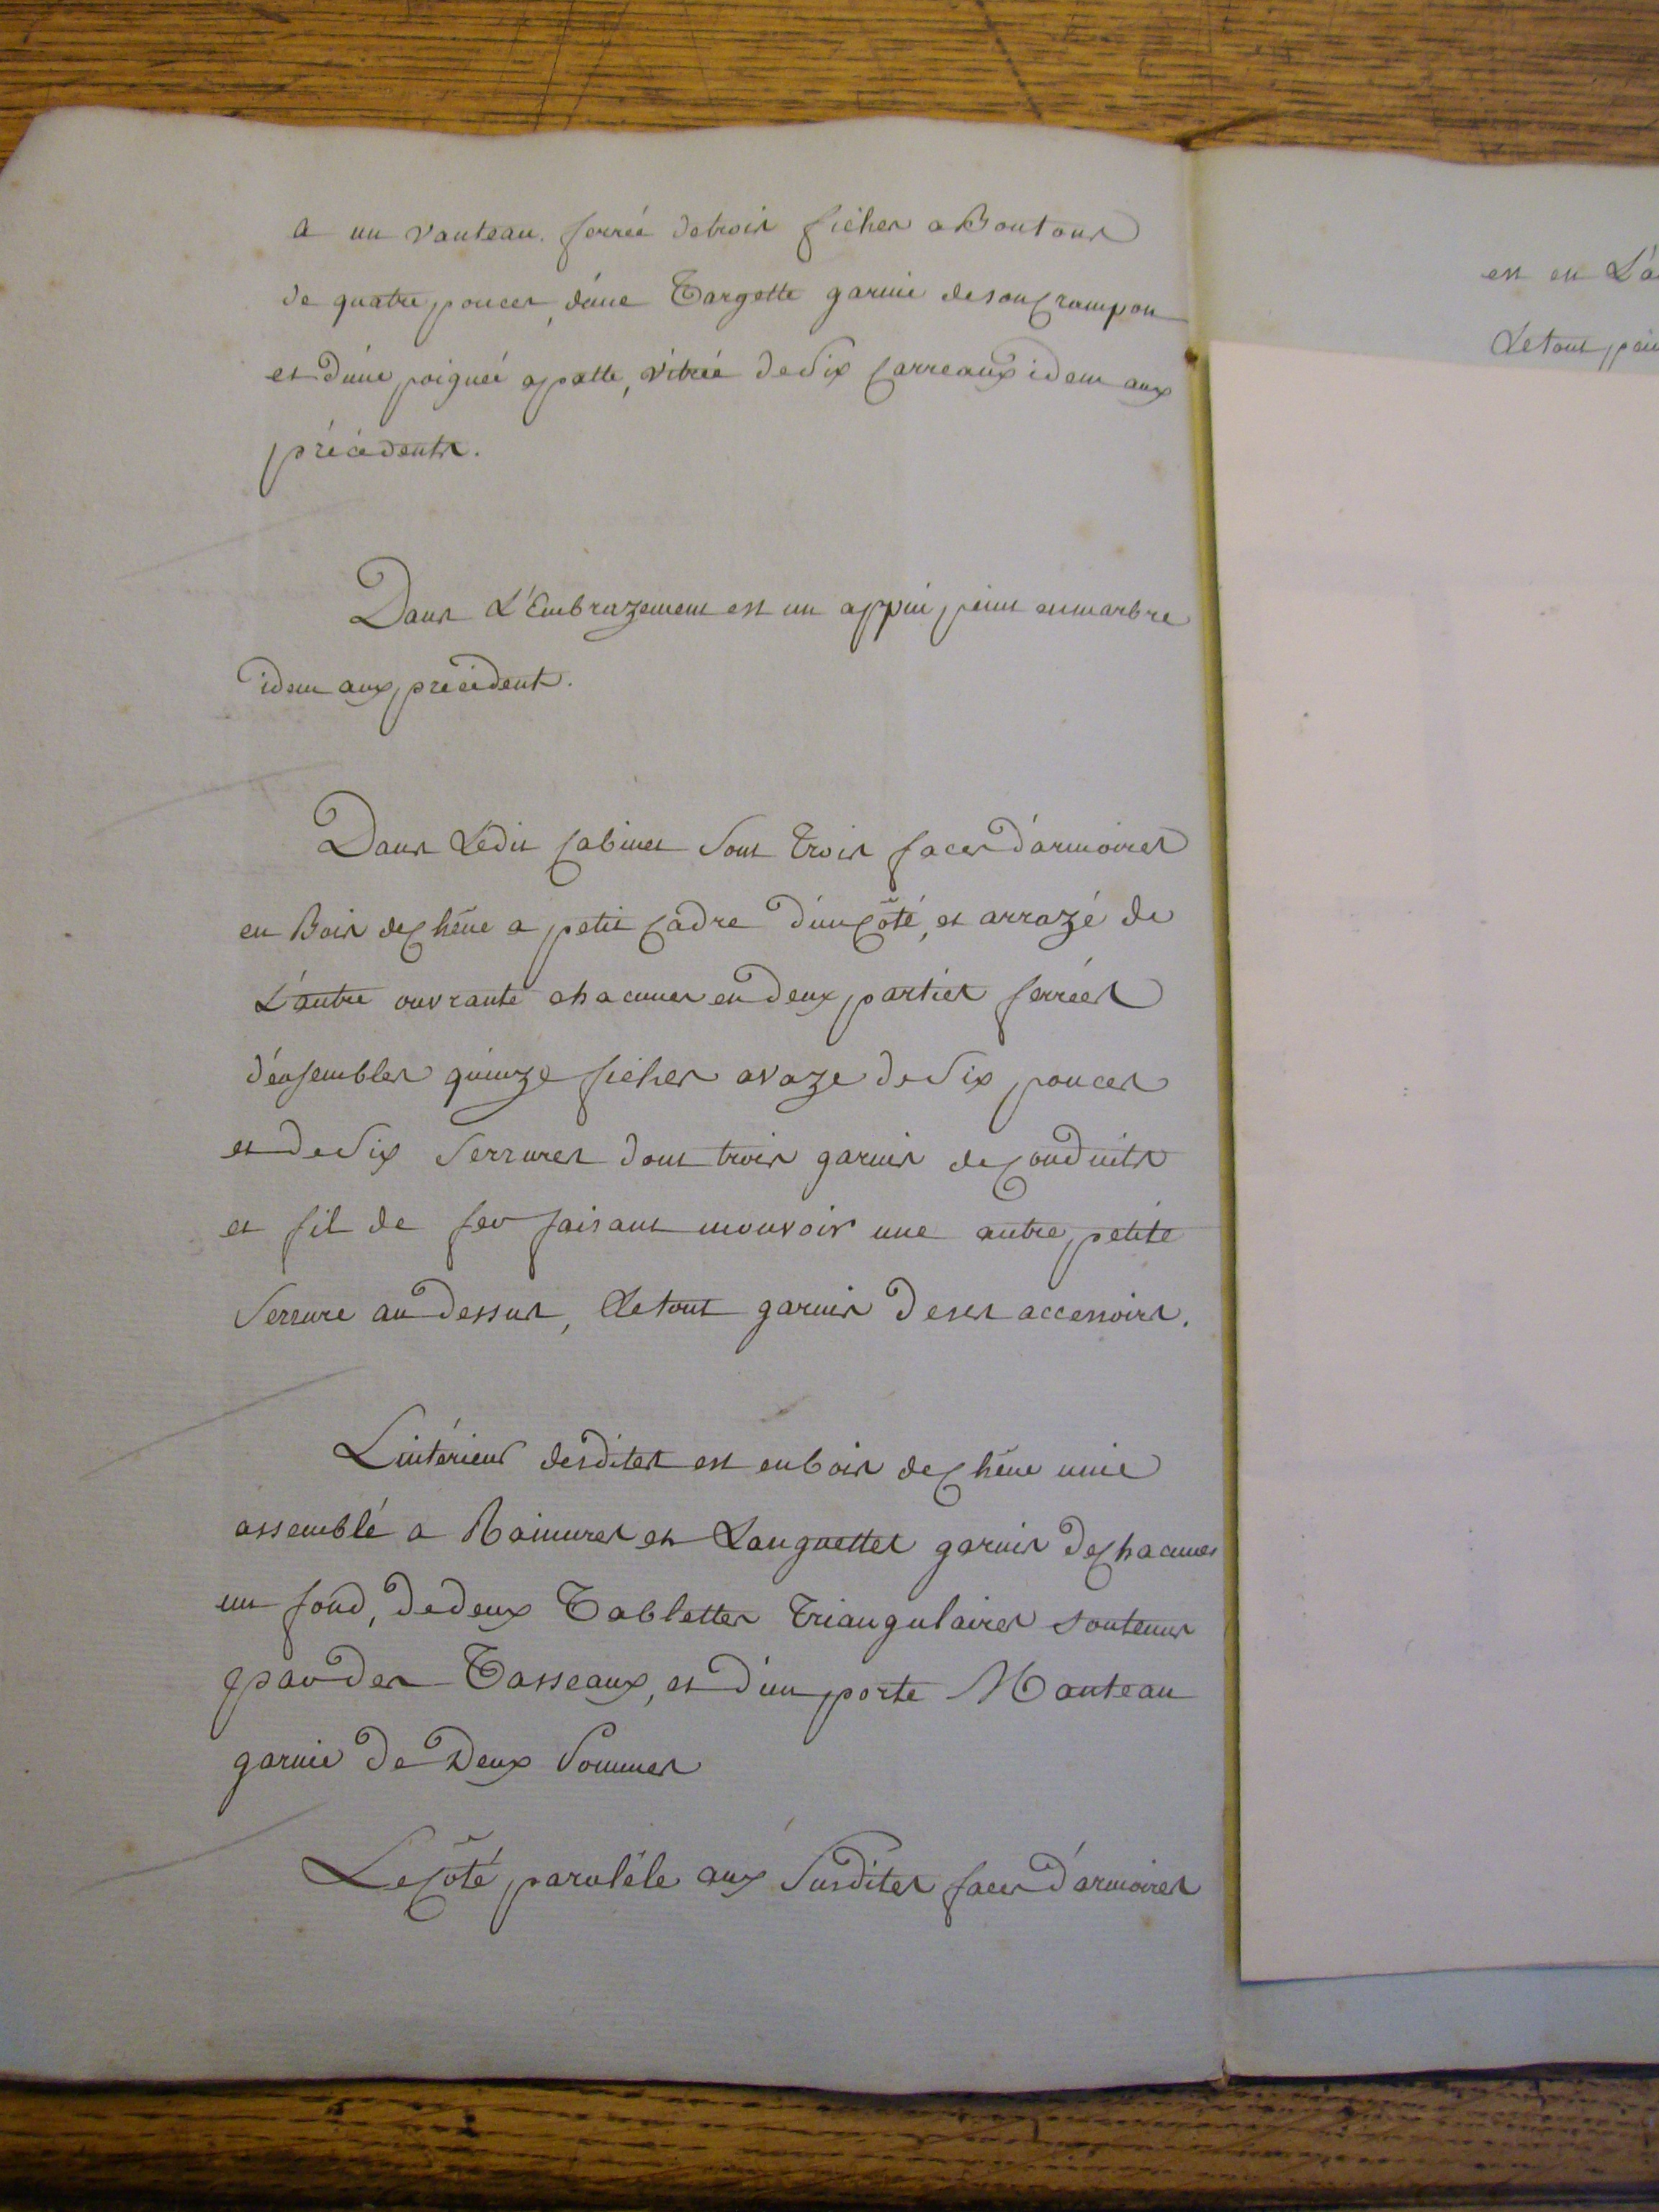 a un vanteau. ferrée detrois fiches a Boutons
de quatre pouces, d'une Targette garnie deson Crampon
et d'une poignée apatte, vitrée de Six Carreaux idem aux
précédents.
Dans L'Embrazement est un appui peint enmarbre
idem aux précédent.
Dans Ledit Cabinet Sont Trois faces d'armoires
en Bois de Chêne a petit Cadre d'un Côté, et arrazé de
L'autre ouvrante chacunes en deux parties ferrées
d'ensembles quinze fiches avaze de Six pouces
et de Six Serrures dont trois garnis de Conduits
et fil de fer faisant mouvoir une autre petite
Serrure au dessus, Letout garnis de ses accessoirs.
L'intérieur desdites est enbois de Chêne unie
assemblé a Rainures et Languettes garnis de Chacunes
un fond, de deux Tablettes Triangulaires soutenus
par des Tasseaux, et d'un porte Manteau
garnie de Deux Pommes
Le Côté paralèle aux Susdites faces d'armoires
est en L'a
Letout pein